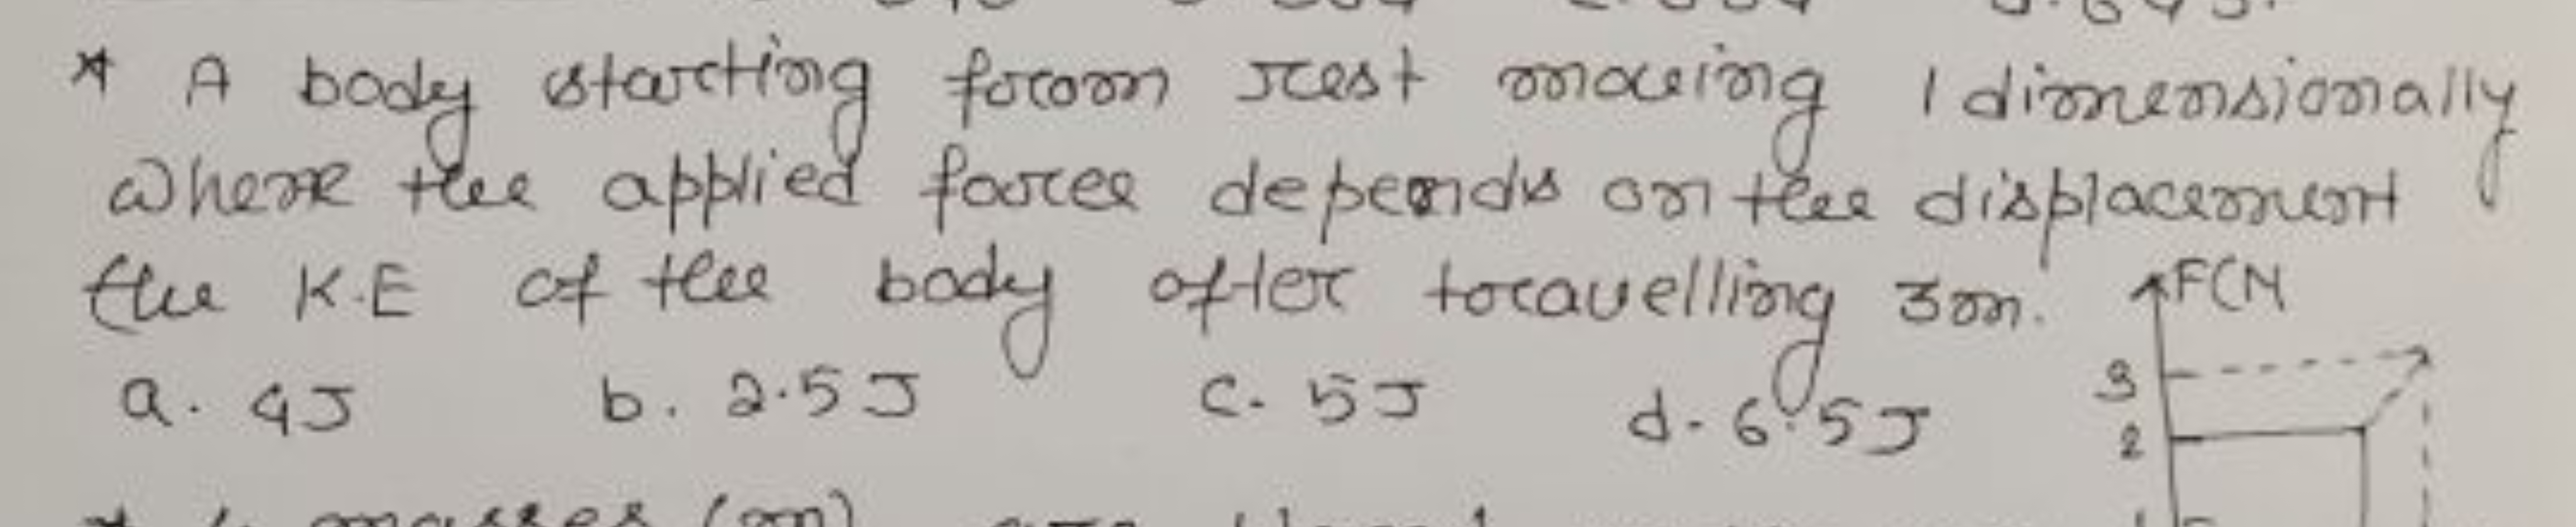 * A body starting from rest moving 1 dimensionally
where the applied force depends on the displacement
the K.E of the body after travelling 3m.
F(N
a. 4J b. 2.5J c. 5J d. 6.5J
3
2
* masses (m) are